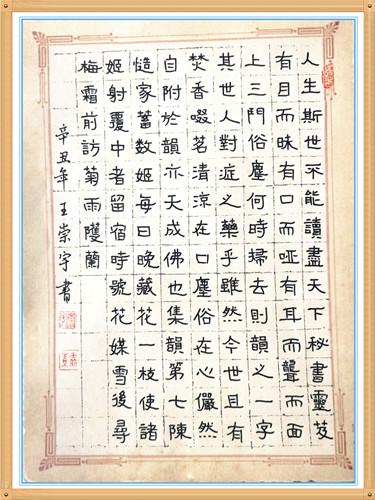 人生斯世不能讀盡天下秘書靈芨
有目而昧有口而啞有耳而聾而面
上三鬥俗塵何時掃去則韻之一字
其世人對症之藥乎雖然今世且有
焚香啜茗清涼在口塵俗在心儼然
自附於韻亦天成佛也集韻第七陳
慥家蓄數姬每日晚藏花一枝使諸
姬射覆中者留宿時號花媒雪後尋
梅霜前訪菊雨護蘭
辛丑年王崇宇書